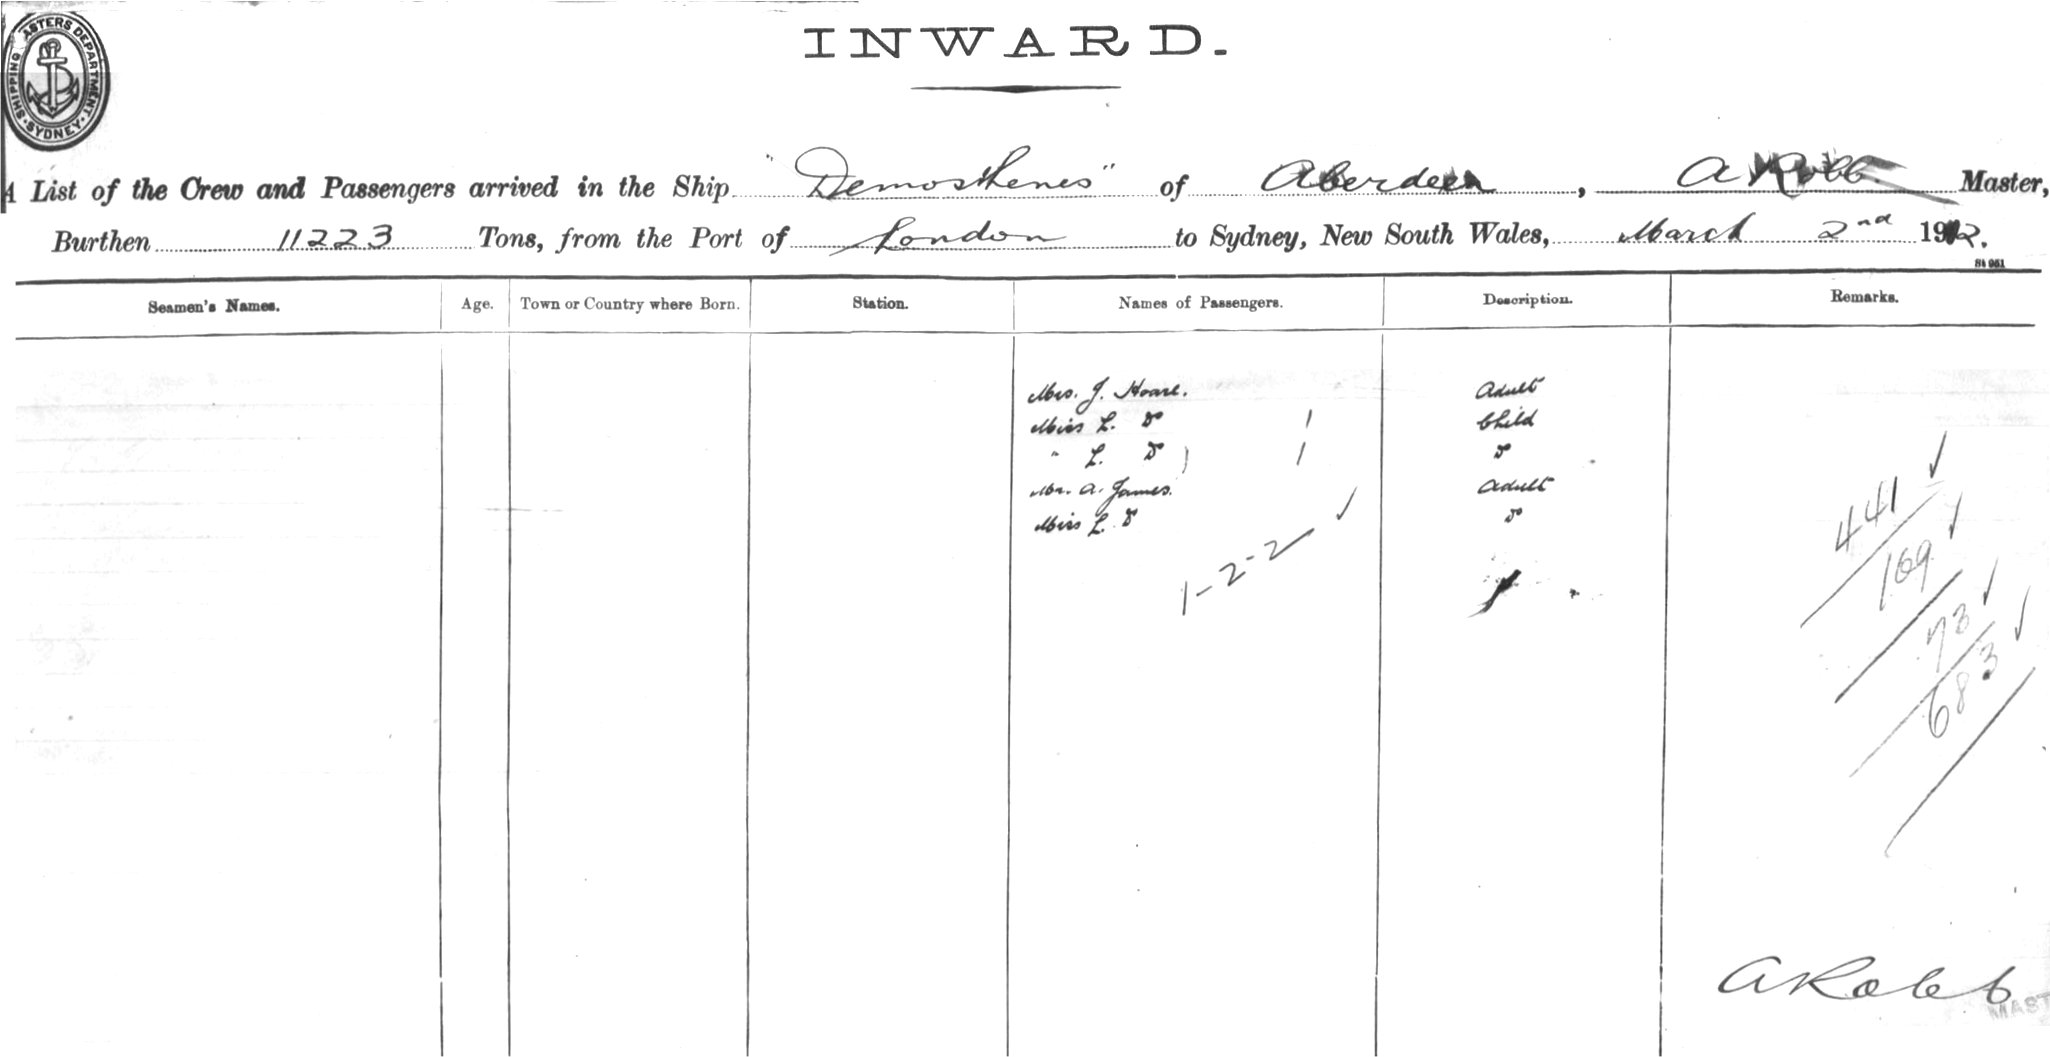 SHIPPING MASTERS DEPARTMENT. SYDNEY.
INWARD.
A List of the Crew and Passengers arrived in the Ship "Demosthenes" of Aberdeen, A Robb Master,
Burthen 11223 Tons, from the Port of London to Sydney, New South Wales, March 2nd 1912.
St 961
Seamen's Names. Age. Town or Country where Born. Station. Names of Passengers. Description. Remarks.
Mrs. J. Hoare. Adult
Miss L. Do 1 Child
" L. Do 1 Do
Mr. A. James. Adult
Miss L. Do Do
1-2-2
441
169
73
683
A Robb
MAST